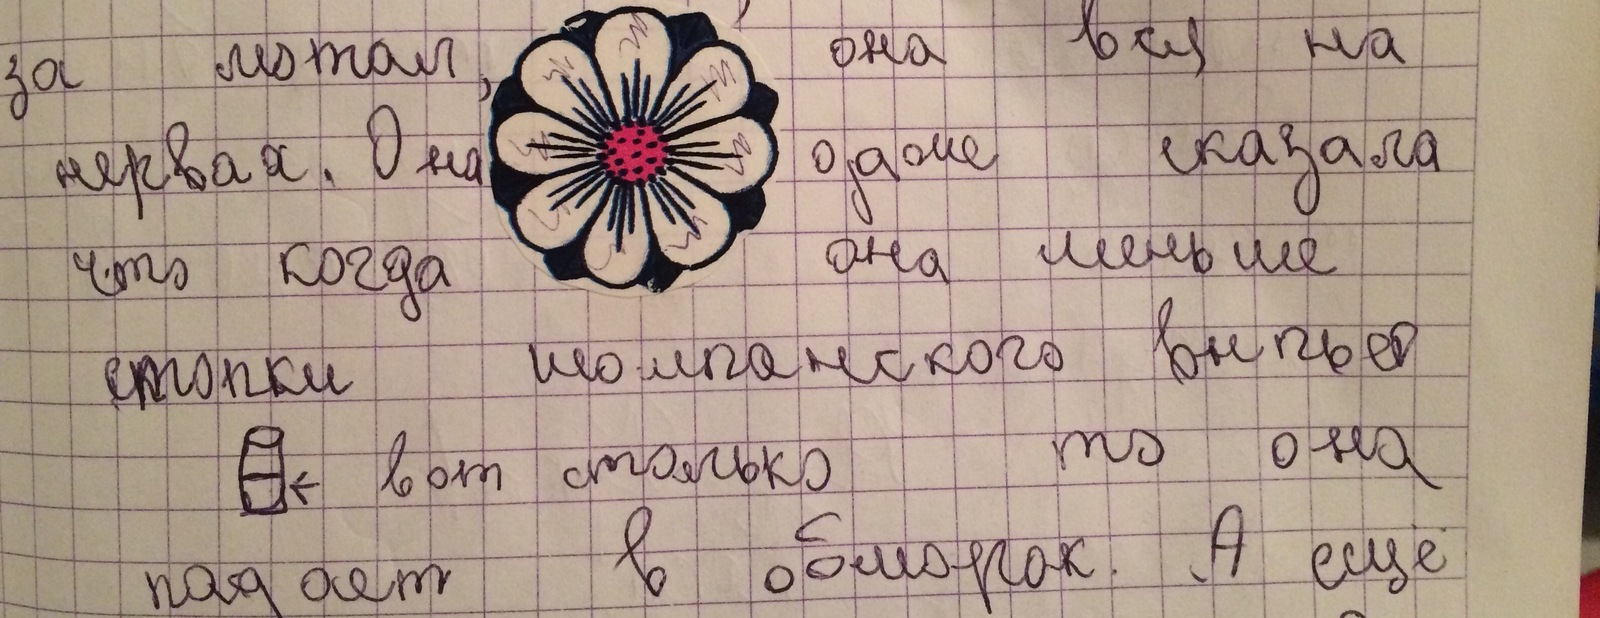 за мотал, она вся на
нервах. Она даже сказала
что когда она меньше
стопки шомпанского внпьет
← вот столько то она
падает в обморок. А ещё